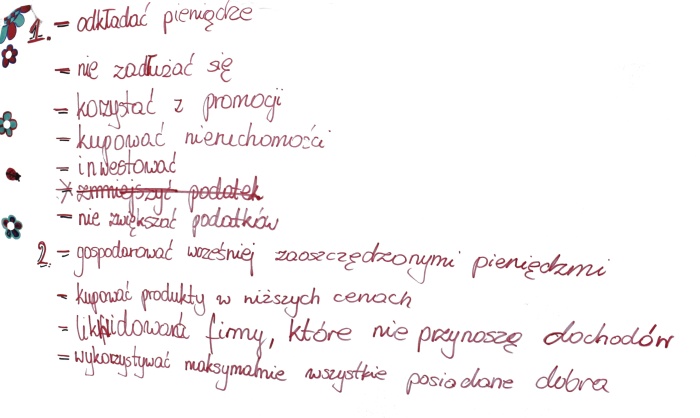 1. - odkładać pieniądze
- nie zadłużać się
- korzystać z promocji
- kupować nieruchomości
- inwestować
- zmniejszyć podatek
- nie zwiększać podatków
2. - gospodarować wcześniej zaoszczędzonymi pieniędzmi
- kupować produkty w niższych cenach
- likwidować firmy, które nie przynoszą dochodów
- wykorzystywać maksymalnie wszystkie posiadane dobra